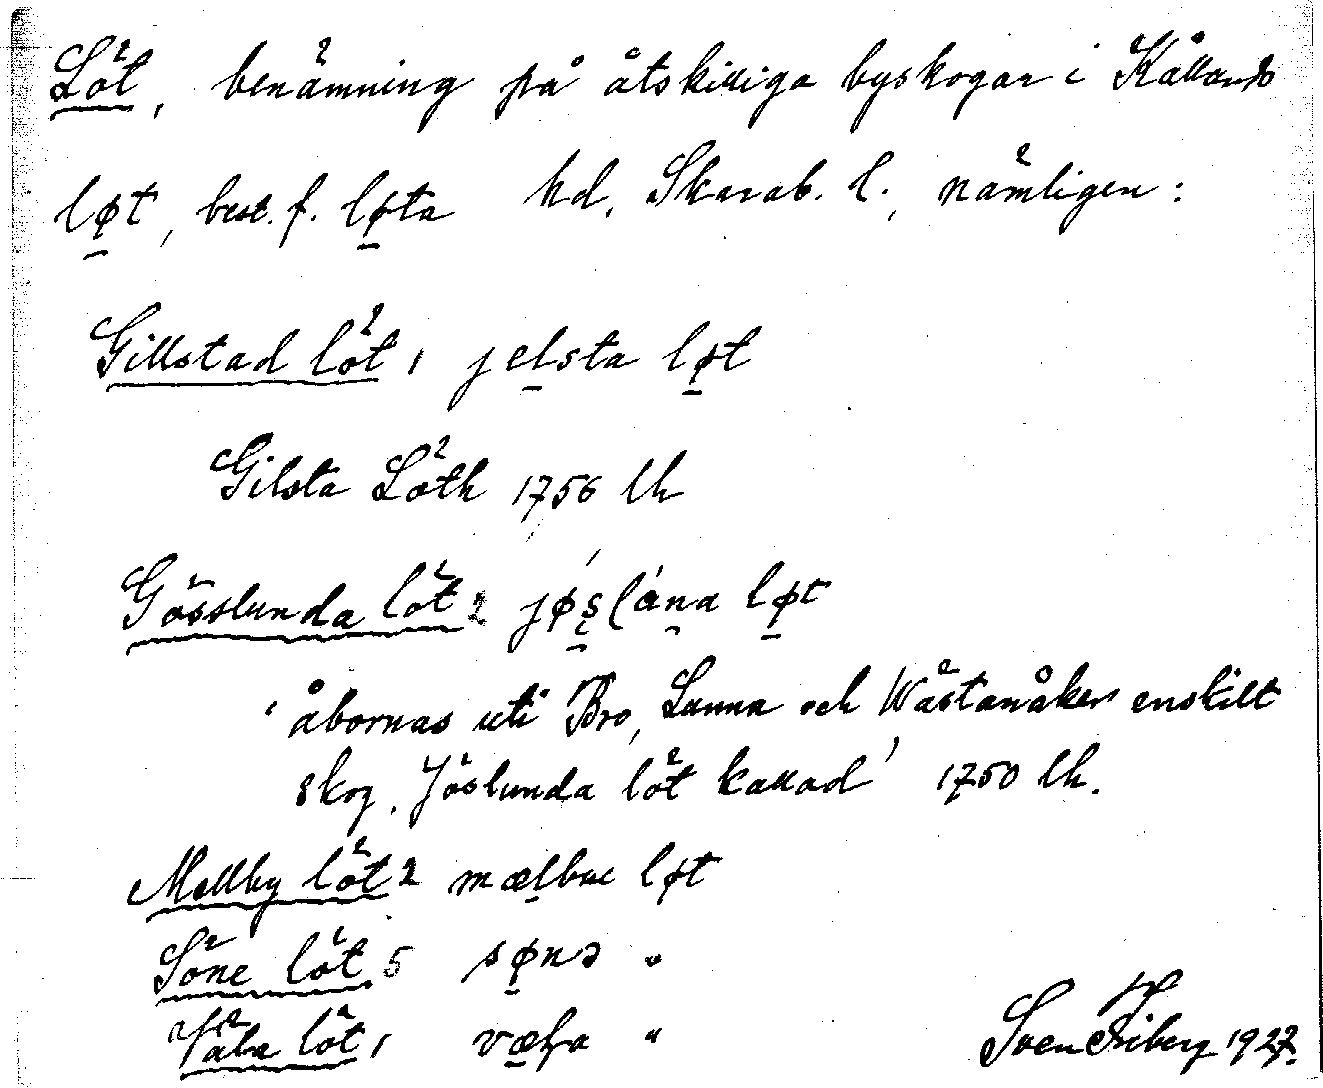 Löt, benämning på åtskilliga byskogar i Kållands
løt, best. f. løta hd, Skarab. l., nämligen:
Gillstad löt 1 jelsta løt
Gilsta Löth 1756 lh
Gösslunda löt 2 løt
'åbornas uti Bro, Lunna och Wästanåker enskilt
skog, Jöslunda löt kallad' 1750 lh.
Mellby löt 2 løt
Söne löt 5 sønə "
löt 1 "
Sven Friberg 1927.